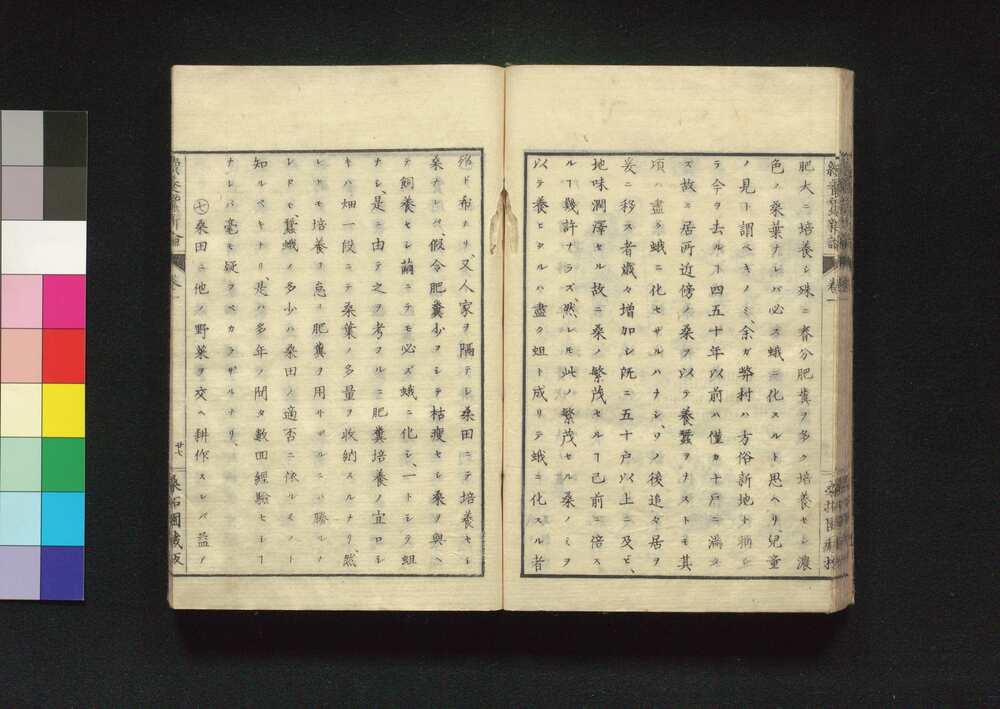 肥大ニ培養シ殊ニ春分肥糞ヲ多ク培養セシ濃
色ノ桑葉ナレバ必ス蛾ニ化スルト思ヘリ、兒童
ノ見ト謂ベキノミ、余ガ弊村ハ方俗新地ト稱シ
今ヲ去ルヿ四五十年以前ハ僅カ十戸ニ滿
ズ故ニ居所近傍ノ桑ヲ以テ養蠶ヲナストモ其
項ハ盡ク蛾ニ化セザルハナシ、ソノ後追々居ヲ
爰ニ移ス者歳々増加シ既ニ五十戸以上ニ及ビ、
地味潤澤セル故ニ桑ノ繁茂セルヿ已前ニ倍ス
ルヿ幾許ナラズ、然レㇳモ此ノ繁茂セル桑ノミヲ
以テ養ヒタルハ盡ク蛆ト成リテ蛾ニ化スル者
殆ド希ナリ、又人家ヲ隔テシ桑田ニテ培養セシ
桑ナレバ、假令肥糞少ヲシテ枯瘦セシ桑ヲ與ヘ
テ飼養セシ繭ニテモ必ズ蛾ニ化シ、一トシテ蛆
ナシ、是ニ由テ之ヲ考フルニ肥糞培養ノ宜ロシ
キハ畑一段ニテ桑葉ノ多量ヲ收納スルナリ、然
レㇳモ培養ヲ怠リ肥糞ヲ用サザルニハ勝ルノ
レドモ、蠶蛾ノ多少ハ桑田ノ適否ニ依ルモノト
知ルベキナリ、是ハ多年ノ間タ數四經驗セシヿ
ナレバ毫モ疑フベカラザルナリ、
㊆桑田ニ他ノ野菜ヲ交ヘ耕作スレバ益ノ
卷一
廿七
桑柘園藏版